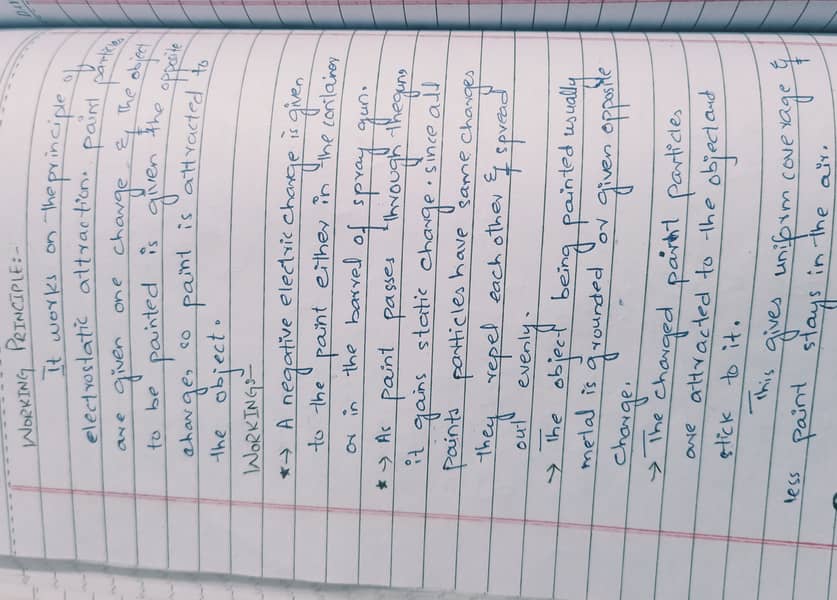 WORKING PRINCIPLE:-
It works on the principle of
electrostatic attraction. paint particles
are given one charge & the object
to be painted is given the opposite
charge, so paint is attracted to
the object.
WORKING:-
*→ A negative electric charge is given
to the paint either in the container
or in the barrel of spray gun.
*→ As paint passes through the gun,
it gains static charge. since all
paints particles have same charges
they repel each other & spread
out evenly.
→ The object being painted usually
metal is grounded or given opposite
charge.
→ The charged paint particles
are attracted to the object and
stick to it.
This gives uniform coverage &
less paint stays in the air.